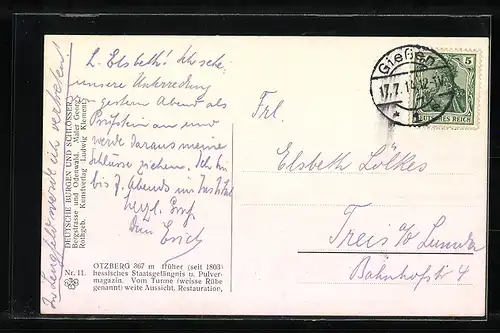 L. Elsbeth! Ich sehe
unsere Unterredung
gestern Abend als
Prüfstein an und
werde daraus meine
Schlüsse ziehen. Ich bin
bis 7. Abends im Institut
herzl. Gruß
Dein Erich
werde ich vertreten!
DEUTSCHE BURGEN UND SCHLÖSSER
Bergstrasse und Odenwald. Maler Georg
Rothgeb. Kunstverlag Ludwig Klement,
Nr. 11.
OTZBERG 367 m früher (seit 1803)
hessisches Staatsgefängnis u. Pulver-
magazin. Vom Turme (weisse Rübe
genannt) weite Aussicht. Restauration,
Gießen
17.7.14
5
DEUTSCHES REICH
Frl.
Elsbeth Lölkes
Treis a/d Lumda
Bahnhofstr 4